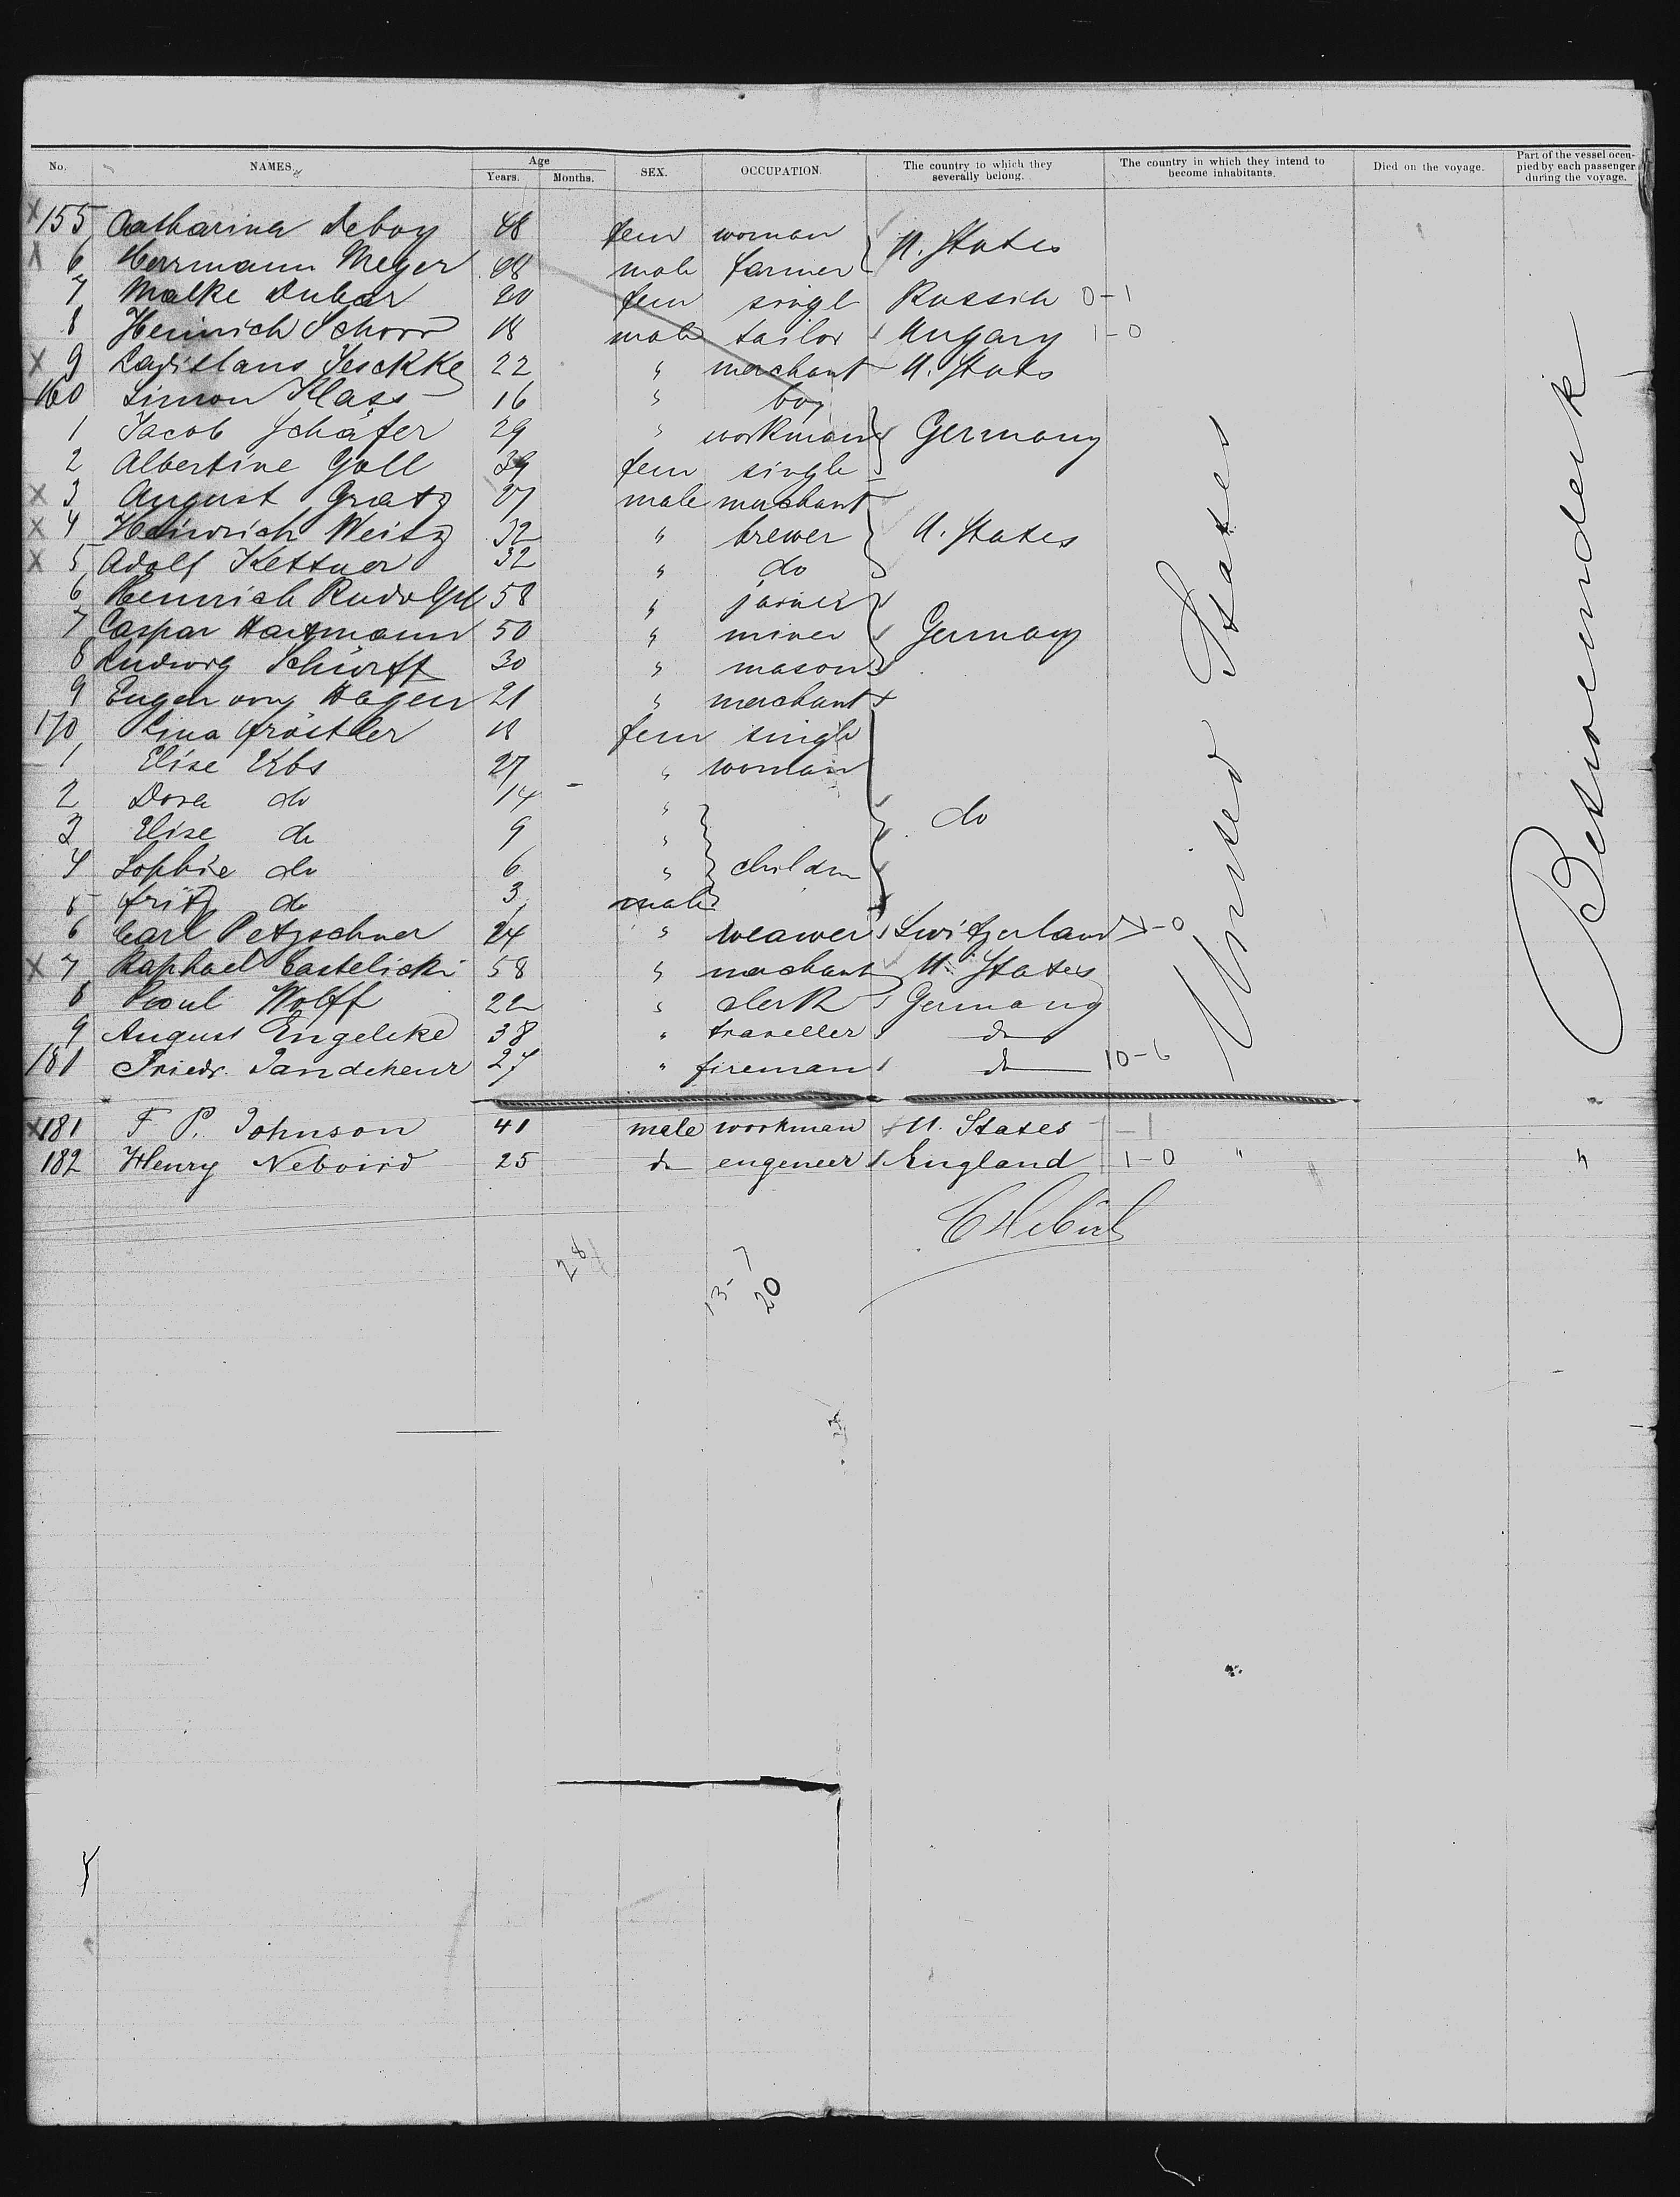 No. NAMES. Age SEX. OCCUPATION. The country to which they severally belong. The country in which they intend to become inhabitants. Died on the voyage. Part of the vessel occupied by each passenger during the voyage.
Years. Months.
X 155 Catharina Deboy 48 fem woman
X 6 Herrmann Meyer 48 male farmer } U. States
7 Malke Dubar 20 fem singl Russia 0-1
8 Heinrich Schorr 18 male tailor Ungary 1-0
X 9 Ladislaus Jesckke 22 " merchant U. Stats
160 Simon Klass 16 " boy
1 Jacob Schäfer 29 " workman } Germany
2 Albertine Goll 39 fem single
X 3 August Gratz 27 male merchant
X 4 Heinrich Weitz 32 " brewer } U. States
X 5 Adolf Kettner 32 " do
6 Heinrich Rudolph 58 " joiner
7 Caspar Hartmann 50 " miner } Germany
8 Ludwig Schürff 30 " mason
9 Eugen von Hagen 21 " merchant
170 Lina Fröstler 18 fem single
1 Elise Erbs 27 " woman
2 Dora do 14 "
3 Elise do 9 " do
4 Sophie do 6 " } childrn
5 Fritz do 3 male
6 Carl Petzschner 24 " weawer Switzerland 1-0
X 7 Raphael Castelicki 58 " merchant U. States
8 Paul Wolff 22 " clerk Germany
9 August Engelcke 38 " traveller do
181 Friedr. Jandeheur 27 " fireman do 10-6
United States
Betweendenk
X 181 F. P. Johnson 41 male workman U. States -1 "
182 Henry Neboird 25 do engeneer England 1-0 " "
28
13-7
20